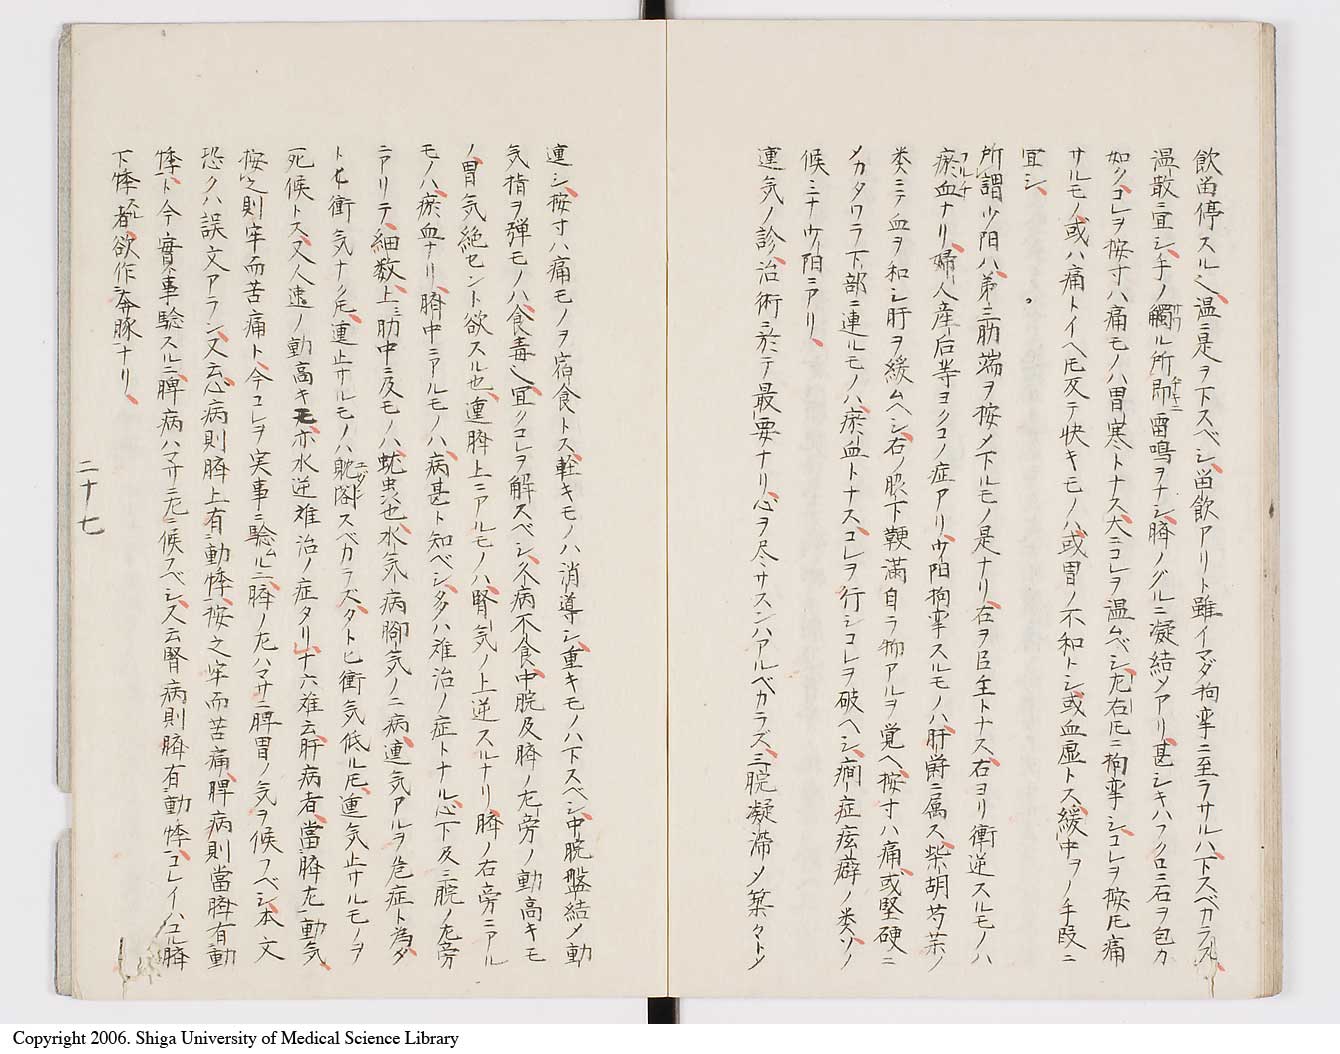 飲畄停スル乀、温ニ是ヲ下スベシ、畄飲アリト雖イマダ拘挛ニ至ラサルハ、下スベカラス、
温散ニ宜シ、手ノ觸ル所、即雷鳴ヲナシ、臍ノグルニ凝結メアリ、甚シキハフクロニ石ヲ包カ
如ク、コレヲ按寸ハ痛モノハ胃寒トナス、大ニコレヲ温ムベシ、左右𪜈ニ拘挛シ、コレヲ按𪜈痛
サルモノ、或ハ痛トイヘ𪜈反テ快キモノハ、或胃ノ不和トシ、或血虚トス、緩中ヲノ手段ニ
宜シ、
所謂少阳ハ、第三肋端ヲ按メ下ルモノ是ナリ、左ヲ臣主トナス、右ヨリ衝逆スルモノハ
瘀血ナリ、婦人産后等ヨクコノ症アリ、少阳拘挛スルモノハ、肝欝ニ属ス、柴胡芍薬ノ
类ニテ血ヲ和シ肝ヲ緩ムヘシ、右ノ脇下鞕滿自ラ物アルヲ覚ヘ、按寸ハ痛、或堅硬ニ
メカタワラ下部ニ連ルモノハ、瘀血トナス、コレヲ行シコレヲ破ヘシ、癇症痃癖ノ类、ソノ
候ミナ少阳ニアリ、
連気ノ診、治術ニ於テ最要ナリ、心ヲ尽サスンハアルベカラズ、三脘凝滞メ築々トノ
連シ、按寸ハ痛モノヲ宿食トス、軽キモノハ消導シ、重キモノハ下スベシ、中脘盤結メ動
気指ヲ弾モノハ、食毒乀、宜クコレヲ解スベシ、久病不食、中脘及臍ノ左旁ノ動高キモ
ノ、胃気絶セント欲スル也、連臍上ニアルモノハ、腎気ノ上逆スルナリ、臍ノ右旁ニアル
モノハ、瘀血ナリ、臍中ニアルモノハ、病甚ト知ベシ、多ハ难治ノ症トナル、心下及三脘ノ左旁
ニアリテ、細数、上ニ肋中ニ及モノハ、蚘虫也、水気病脚気ノ二病、連気アルヲ危症ト為、タ
トヒ衝気ナク𪜈、連止サルモノハ、耽閣スベカラズ、タトヒ衝気低ル𪜈、連気止サルモノヲ
死候トス、又人迎ノ動高キモ亦水逆难治ノ症タリ、十六难云、肝病者、當臍左動気、
按之則牢而苦痛ト、今コレヲ実事ニ騐ムルニ、臍ノ左ハマサニ脾胃ノ気ヲ候フベシ、本文
恐クハ誤文アラン、又云、心病則臍上有動悸、按之牢而苦痛、脾病則當臍有動
悸ト、今實事騐スルニ、脾病ハマサニ左ニ候フベシ、又云腎病則臍有動悸、コレイハユル臍
下悸者、欲作奔豚ナリ、
二十七
Copyright 2006. Shiga University of Medical Science Library